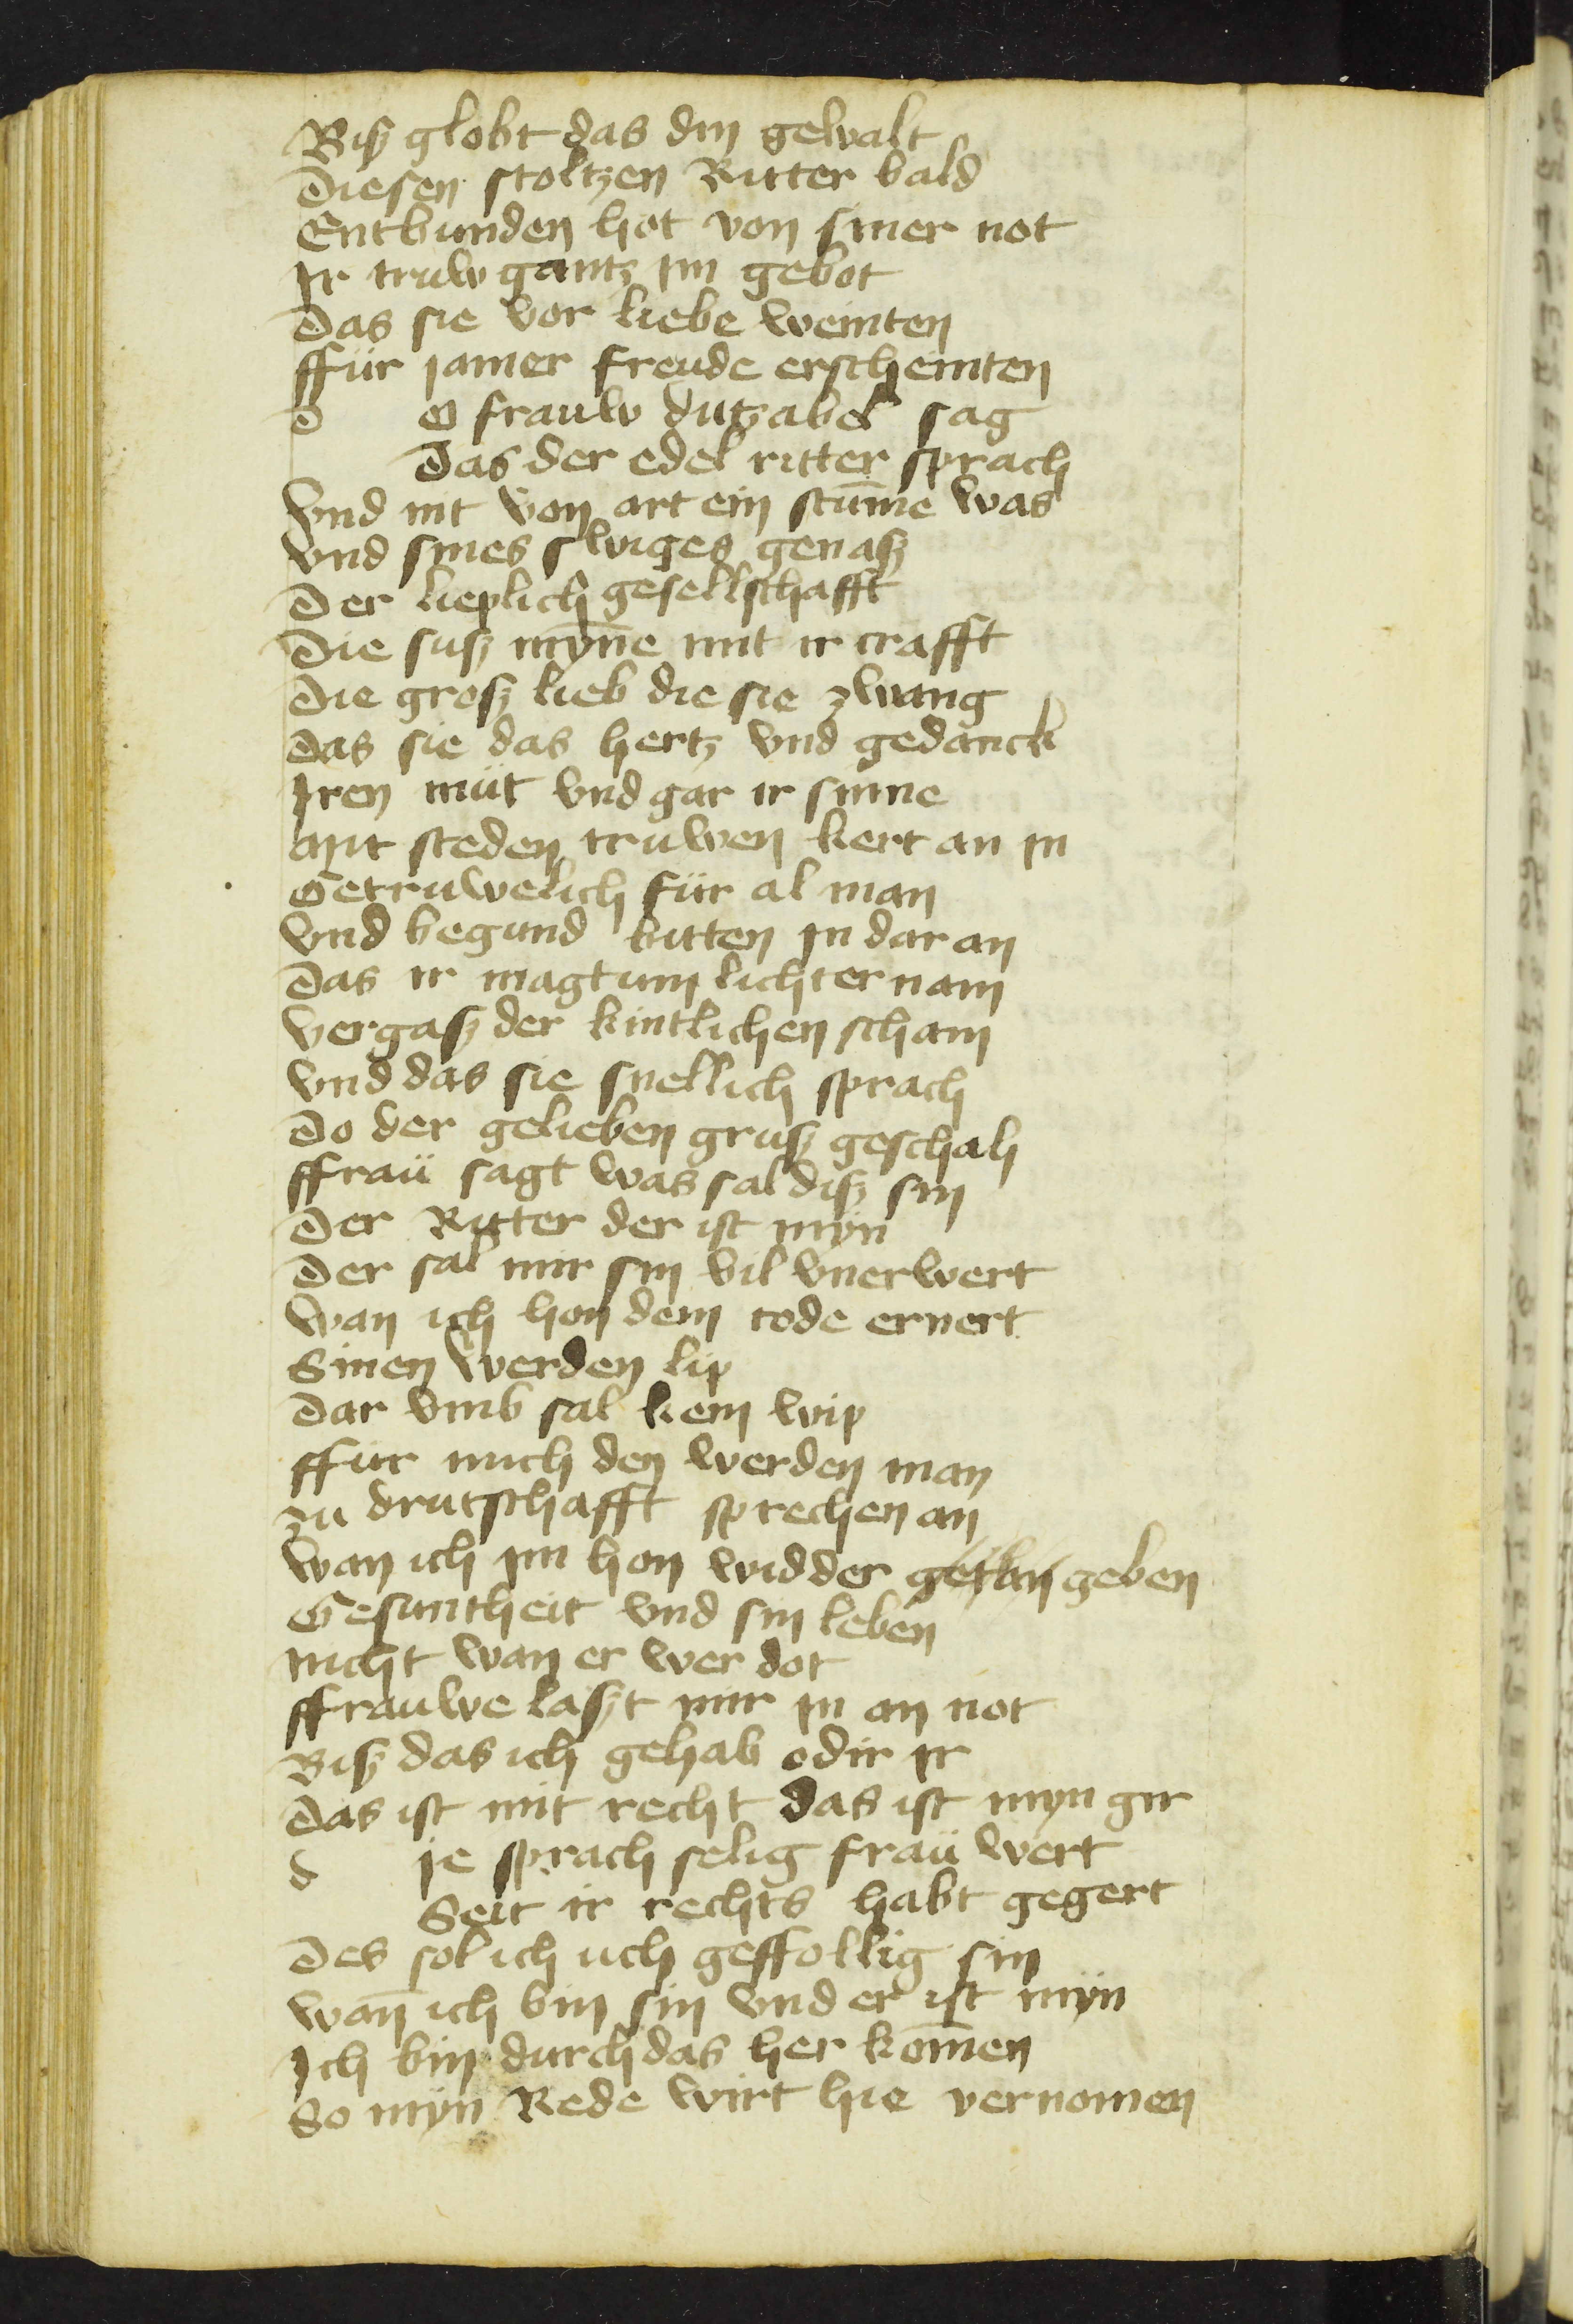 Bisz globt das din gewalt
Diesen stoltzen Ritter bald
Entbunden hot von siner not
Ir truw gantz im gebot
Das sie vor liebe weinten
ffür jamer freude erscheinten
d o frauw dutzabel sag
Das der edel ritter sprach
Vnd nit von art ein stum̄e was
vnd sines swiges genasz
Der lieplich gesellschafft
Die susz myn̄e mit ir crafft
Die grosz lieb die sie zwang
Das sie das hertz vnd gedanck
Iren müt vnd gar ir sinne
Mit steden truwen kert an in
Getruwelich für al man
Vnd begund bitten in dar an
Das ir magtum lichter nam
Vergasz der kintlichen scham
Vnd das sie snellich sprach
Do der gelieben grusz geschah
ffraü sagt was sal disz sin
Der Ritter der ist myn
Der sal mir sin vil vnerwert
Wan ich hon dem tode ernert
Sinen werden lip
Dar vmb sal kein wip
ffur mich den werden man
zu drutschafft sprechen an
Wan ich im hon widder getan geben
Gesuntheit vnd sin leben
nicht wan er wer dot
ffrauwe laszt mir in an not
Bisz das ich gehab odir ir
Das ist mit recht das ist myn gir
d ie sprach selig fraü wert
Seit ir rechts habt gegert
Des sol ich uch geffollig sin
wan̄ ich bin sin vnd er ist myn
Ich bin durch das her kom̄en
So myn Rede wirt hie vernomen